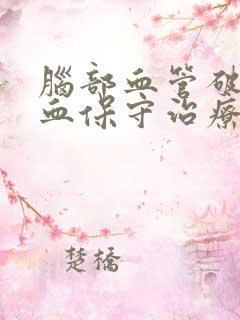 腦部血管破
血保守治療
楚橋